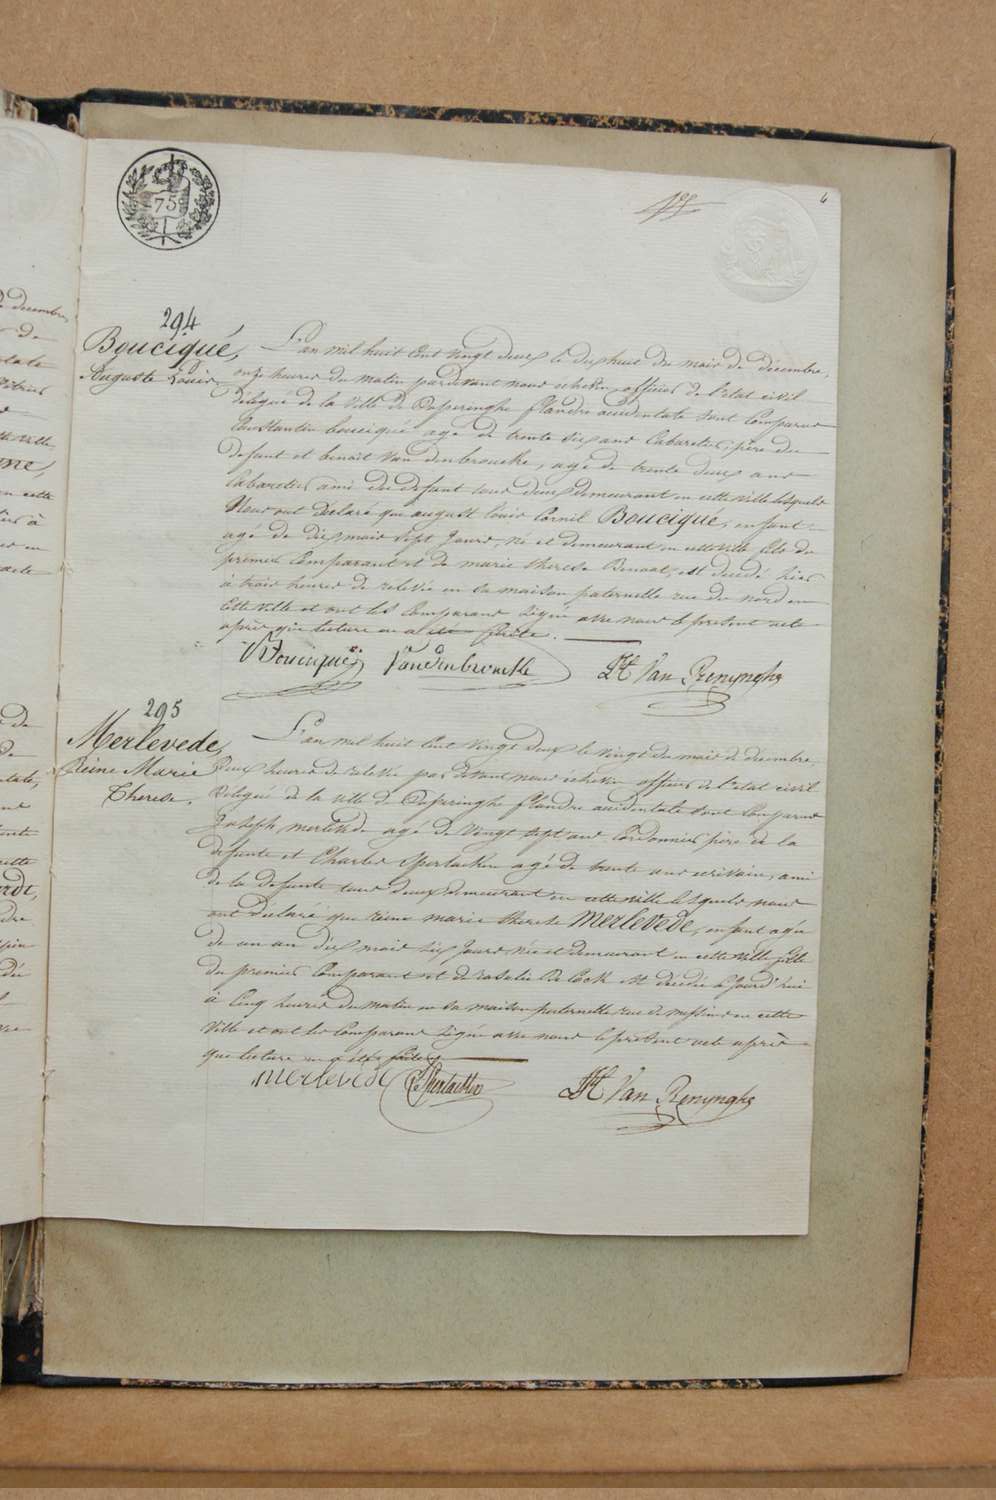 75
4
294
Bouciqué,
Auguste Louis
L'an mil huit cent vingt deux le dix huit du mois de décembre,
onze heures du matin pardevant nous échevin officier de l'état civil
délégué de la ville de Poperinghe flandre occidentale sont comparus
Constantin bouciqué agé de trente six ans Cabaretier, père du
defunt et benoit Vandenbroucke, agé de trente deux ans
Cabaretier ami du defunt tous deux demeurant en cette ville lesquels
Nous ont déclaré que august louis Cornil Bouciqué, enfant
agé de dix mois sept jours, né et demeurant en cette ville fils du
premier Comparant et de marie therese Benoot, est decedé hier
à trois heures de relevée en sa maison paternelle rue du nord en
Cette ville et ont les Comparans signé avec nous le present acte
après que lecture en a été faite.
Bouciqué Vandenbroucke Van Renynghe
295
Merlevede,
Reine Marie
Therese.
L'an mil huit Cent Vingt deux le vingt du mois de decembre,
Deux heures de relevée par devant nous échevin officier de l'état civil
Delegué de la ville de Poperinghe flandre occidentale sont Comparus
Joseph merlevede agé de Vingt sept ans Cordonnier père de la
defunte et Charles agé de trente ans ecrivain, ami
de la defunte tous deux demeurant en cette ville lesquels nous
ont déclaré que reine marie therese Merlevede, enfant agée
de un an dix mois six jours née et demeurant en cette ville fille
du premier Comparant et de rosalie De Cock est decedée
à Cinq heures du matin en sa maison paternelle rue de messine en cette
Ville et ont les Comparans signé avec nous le présent acte après
que lecture en a été faite
merlevede Van Renynghe